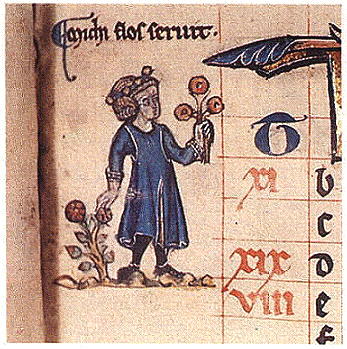 michi flos seruit.
xi b
c
xix d
viii e
f